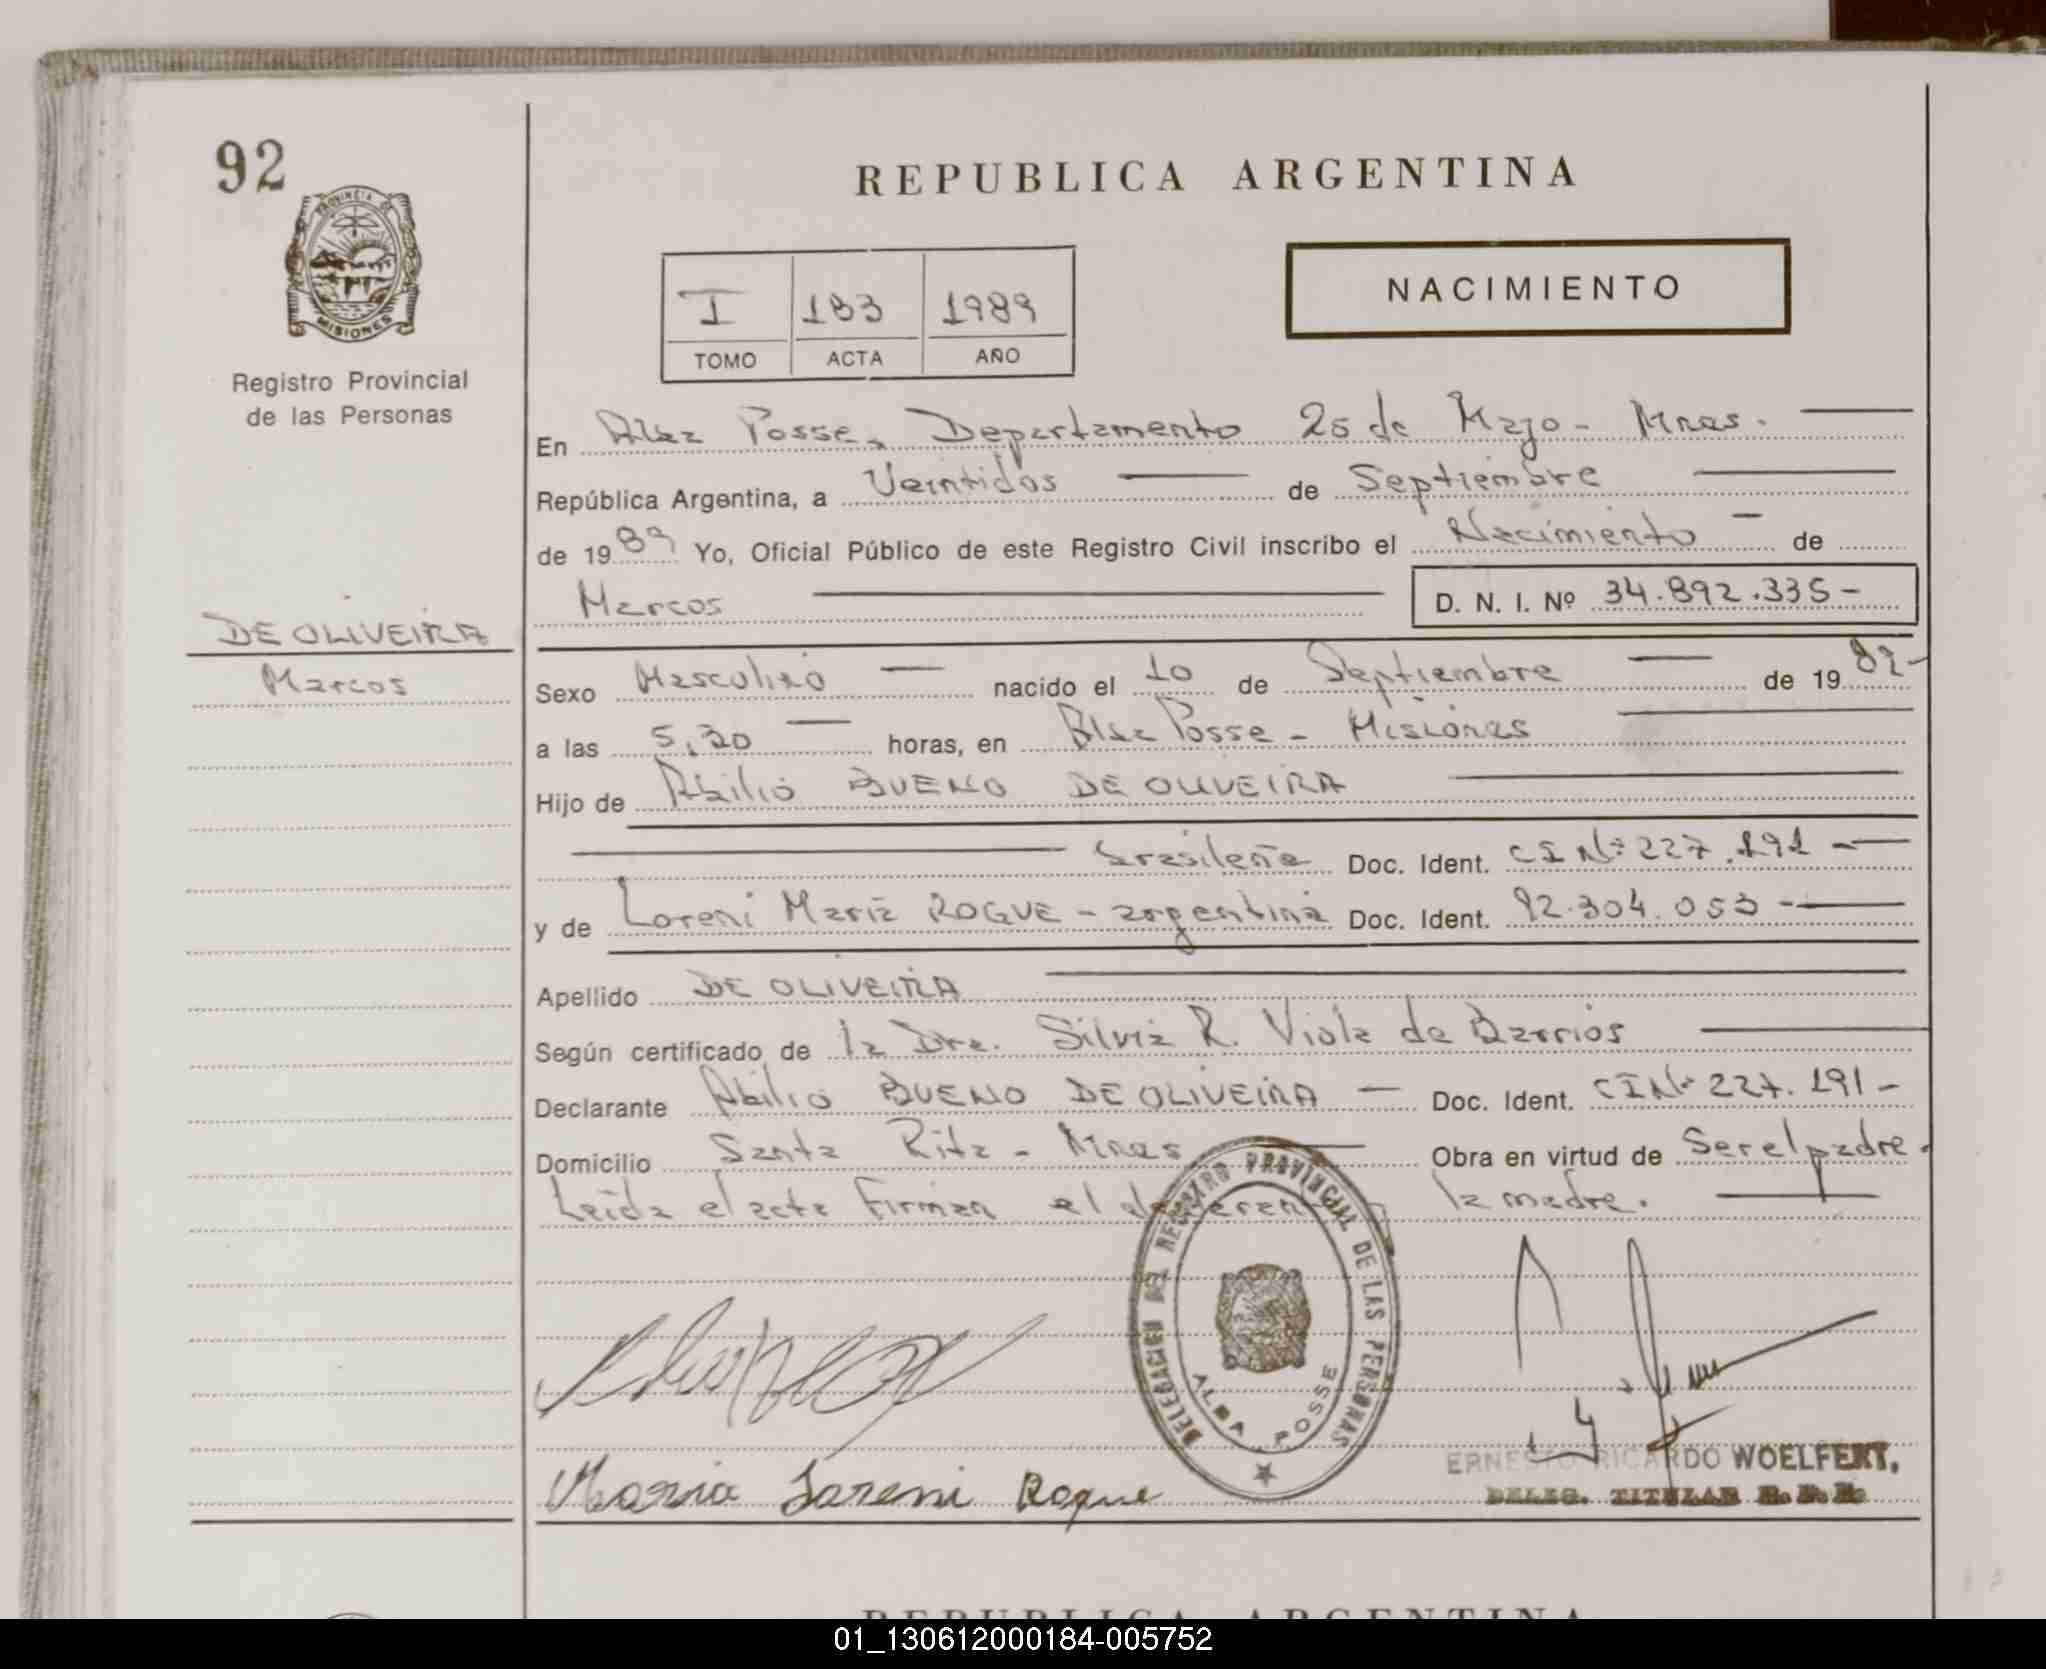 92
PROVINCIA DE
MISIONES
Registro Provincial
de las Personas
REPUBLICA ARGENTINA
I 183 1989
TOMO ACTA AÑO
NACIMIENTO
En Alba Posse, Departamento 25 de Mayo - Mnes.
República Argentina, a Veintidos de Septiembre
de 1989 Yo, Oficial Público de este Registro Civil inscribo el Nacimiento de
Marcos D. N. I. Nº 34.892.335-
DE OLIVEIRA
Marcos
Sexo Masculino nacido el 10 de Septiembre de 1989-
a las 5,30 horas, en Alba Posse - Misiones
Hijo de Abilio BUENO DE OLIVEIRA
brasileña Doc. Ident. CI Nº 227.191
y de Loreni Maria ROGUE - argentina Doc. Ident. 92.304.053
Apellido DE OLIVEIRA
Según certificado de la Dra. Silvia R. Viola de Barrios
Declarante Abilio BUENO DE OLIVEIRA Doc. Ident. CI Nº 227.191-
Domicilio Santa Rita - Mnes Obra en virtud de Ser el padre.
Leida el acta firman el la madre.
DELEGACION DEL REGISTRO PROVINCIAL DE LAS PERSONAS
ALBA POSSE
Maria Loreni Roque
ERNESTO RICARDO WOELFERT,
DELEG. TITULAR R.P.P.
REPUBLICA ARGENTINA
01_130612000184-005752